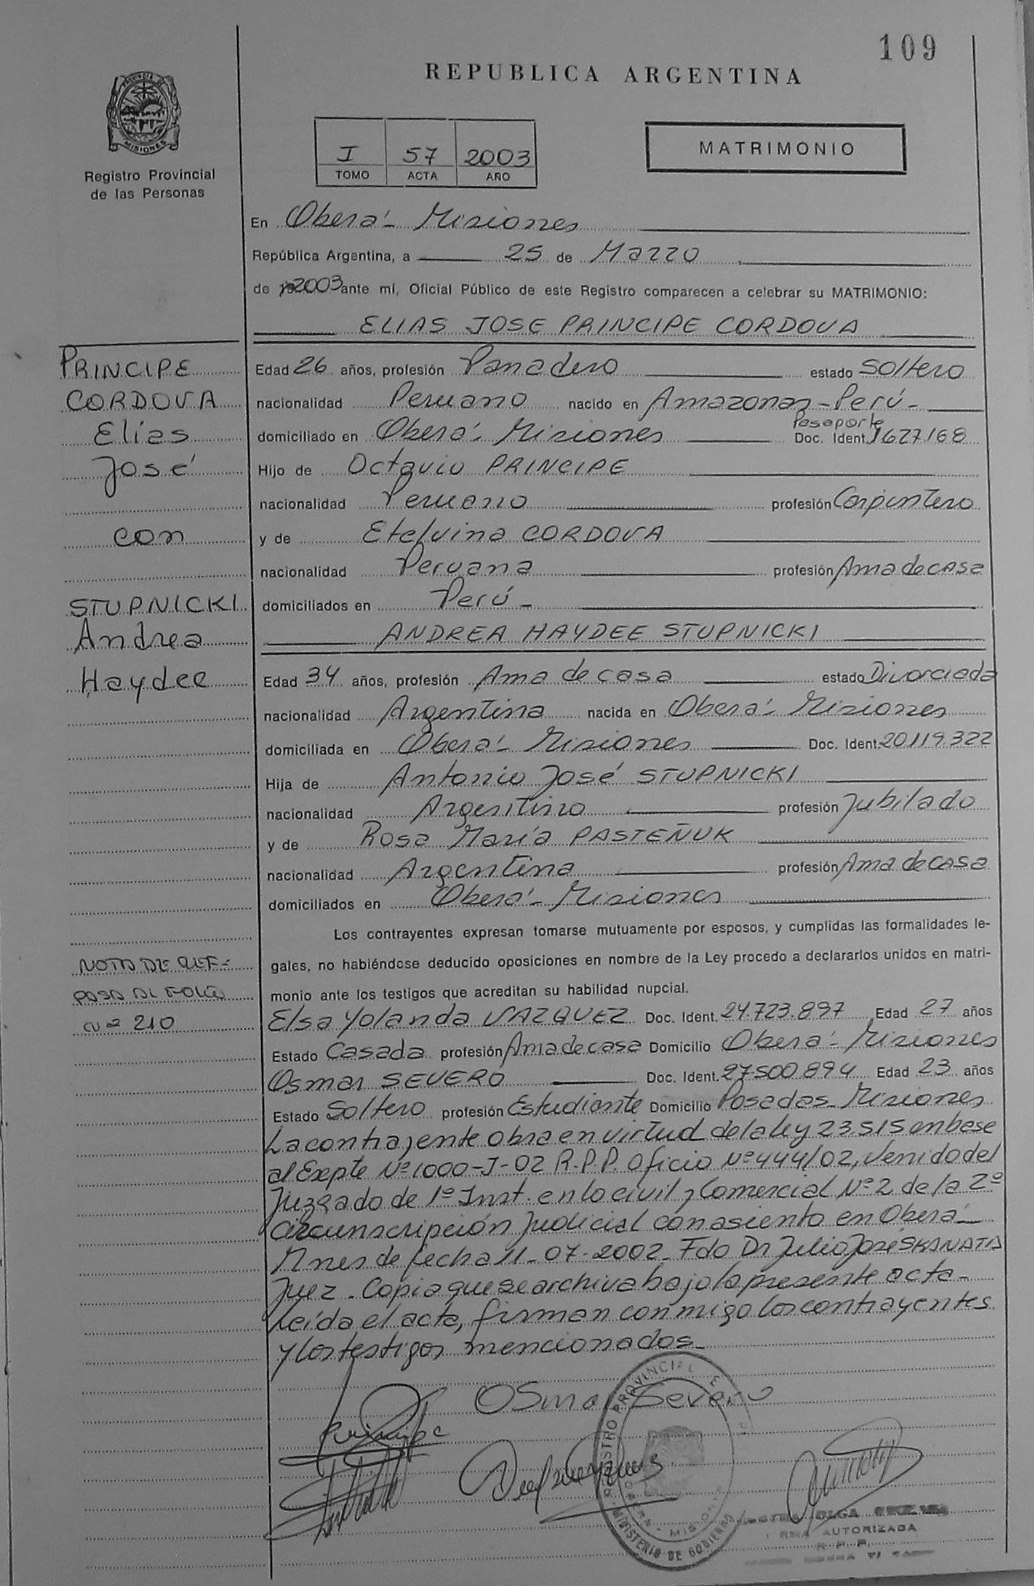 109
REPUBLICA ARGENTINA
PROVINCIA DE MISIONES
Registro Provincial
de las Personas
I 57 2003
TOMO ACTA AÑO
MATRIMONIO
En Oberá - Misiones
República Argentina, a 25 de Marzo
de 2003 ante mí, Oficial Público de este Registro comparecen a celebrar su MATRIMONIO:
ELIAS JOSE PRINCIPE CORDOVA
PRINCIPE
CORDOVA
Elías
José
con
STUPNICKI
Andrea
Haydee
Edad 26 años, profesión Panadero estado Soltero
nacionalidad Peruano nacido en Amazonas - Perú -
domiciliado en Oberá - Misiones Pasaporte Doc. Ident. 1627168
Hijo de Octavio PRINCIPE
nacionalidad Peruano profesión Carpintero
y de Etelvina CORDOVA
nacionalidad Peruana profesión Ama de casa
domiciliados en Perú -
ANDREA HAYDEE STUPNICKI
Edad 34 años, profesión Ama de casa estado Divorciada
nacionalidad Argentina nacida en Oberá - Misiones
domiciliada en Oberá - Misiones Doc. Ident. 20119322
Hija de Antonio José STUPNICKI
nacionalidad Argentino profesión Jubilado
y de Rosa María PASTEÑUK
nacionalidad Argentina profesión Ama de casa
domiciliados en Oberá - Misiones
Los contrayentes expresan tomarse mutuamente por esposos, y cumplidas las formalidades le-
gales, no habiéndose deducido oposiciones en nombre de la Ley procedo a declararlos unidos en matri-
monio ante los testigos que acreditan su habilidad nupcial.
NOTA DE REF-
PASA AL FOLIO
Nº 210
Elsa Yolanda VAZQUEZ Doc. Ident. 24.723.897 Edad 27 años
Estado Casada profesión Ama de casa Domicilio Oberá - Misiones
Osmar SEVERO Doc. Ident. 27500.894 Edad 23 años
Estado Soltero profesión Estudiante Domicilio Posadas - Misiones
La contrayente obra en virtud de la ley 23.515 en base
al Expte Nº 1000-J-02 R.P.P. Oficio Nº 444/02, venido del
Juzgado de 1º Inst. en lo civil y Comercial Nº 2 de la 2º
Circunscripción Judicial con asiento en Oberá -
Mnes de fecha 11-07-2002 Fdo Dr Julio José SKANATIS
Juez - Copia que se archiva bajo la presente acta -
Leída el acta, firman conmigo los contrayentes
y los testigos mencionados -
Osmar Severo
Principe
REGISTRO PROVINCIAL DE
OBERA - MISIONES
MINISTERIO DE GOBIERNO
OLGA
AUTORIZADA
R. P. P.